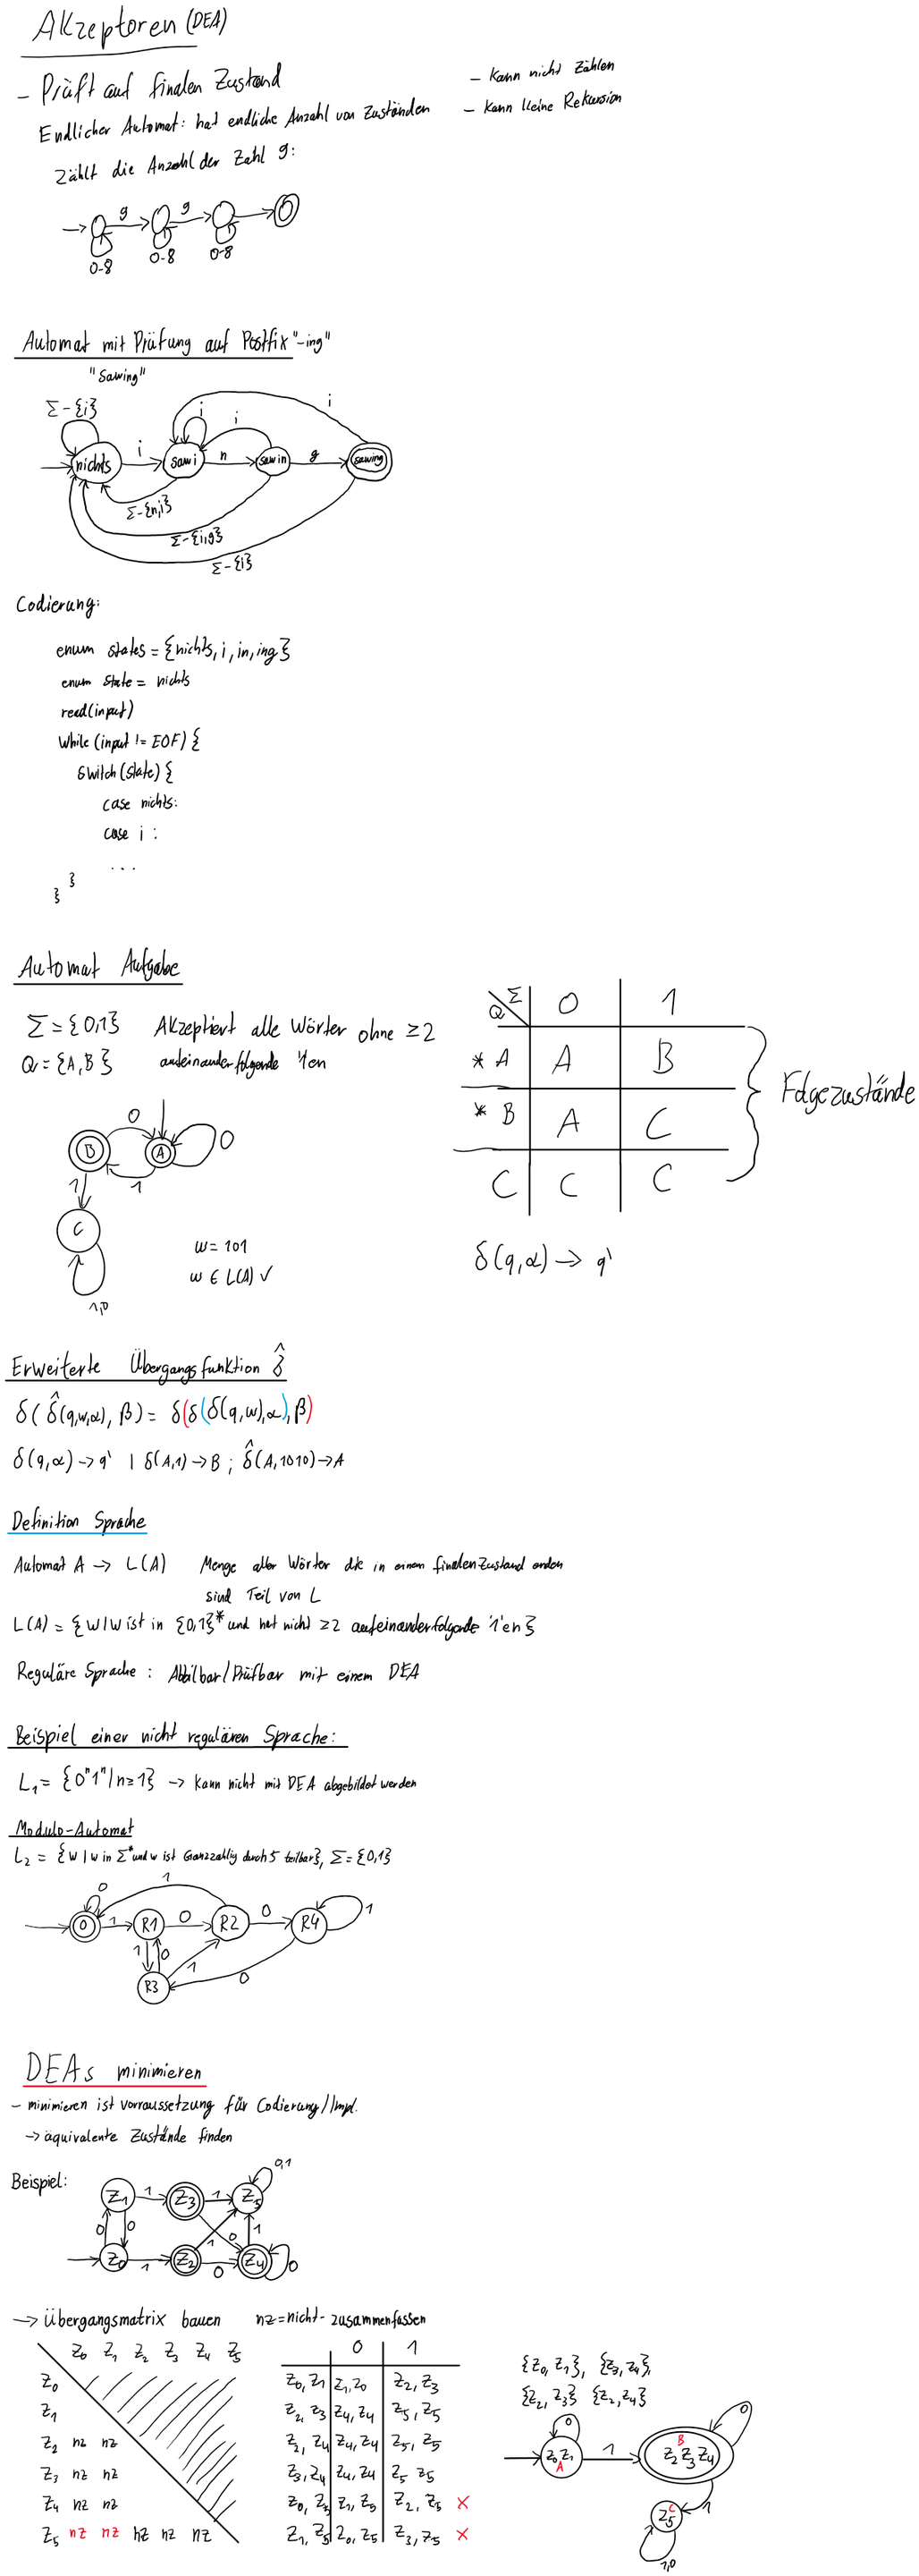 Akzeptoren (DEA)
- Prüft auf finalen Zustand
- Kann nicht Zählen
Endlicher Automat: hat endliche Anzahl von Zuständen
- Kann keine Rekursion
Zählt die Anzahl der Zahl 9:
9 9
0-8 0-8 0-8
Automat mit Prüfung auf Postfix "-ing"
"Sawing"
Σ-{i} i i i
nichts i sawi n sawin g sawing
Σ-{n,i}
Σ-{i,g}
Σ-{i}
Codierung:
enum states = {nichts, i, in, ing}
enum state = nichts
read(input)
while (input != EOF) {
switch (state) {
case nichts:
case i :
...
}
}
Automat Aufgabe
Σ = {0,1} Akzeptiert alle Wörter ohne ≥2
Q = {A,B} aufeinanderfolgende 1en
Q Σ 0 1
* A A B
* B A C
C C C
Folgezustände
0
B A 0
1 1
C
1,0
w = 101
w ∈ L(A) ✓
δ(q,α) → q'
Erweiterte Übergangsfunktion δ̂
δ( δ̂(q,w,α), β) = δ(δ(δ(q,w),α),β)
δ(q,α) -> q' | δ(A,1) -> B ; δ̂(A,1010) -> A
Definition Sprache
Automat A -> L(A) Menge aller Wörter die in einem finalen Zustand enden
sind Teil von L
L(A) = {w|w ist in {0,1}* und hat nicht ≥2 aufeinanderfolgende 1'en}
Reguläre Sprache : Abbilbar/Prüfbar mit einem DEA
Beispiel einer nicht regulären Sprache:
L₁ = {0ⁿ1ⁿ|n≥1} -> kann nicht mit DEA abgebildet werden
Modulo-Automat
L₂ = {w|w in Σ* und w ist Ganzzahlig durch 5 teilbar}, Σ = {0,1}
0 1
0 1 R1 0 R2 0 R4 1
1 0 1 0
R3
DEAs minimieren
- minimieren ist vorraussetzung für Codierung/Impl.
-> äquivalente Zustände finden
Beispiel:
0,1
Z1 1 Z3 1 Z5
0 0 1 0 1
Z0 1 Z2 0 Z4 0
-> Übergangsmatrix bauen nz = nicht-zusammenfassen
Z0 Z1 Z2 Z3 Z4 Z5
Z0
Z1
Z2 nz nz
Z3 nz nz
Z4 nz nz
Z5 nz nz nz nz nz
0 1
Z0, Z1 Z1, Z0 Z2, Z3
Z2, Z3 Z4, Z4 Z5, Z5
Z2, Z4 Z4, Z4 Z5, Z5
Z3, Z4 Z4, Z4 Z5 Z5
Z0, Z5 Z1, Z5 Z2, Z5 ×
Z1, Z5 Z0, Z5 Z3, Z5 ×
{Z0, Z1}, {Z3, Z4},
{Z2, Z3} {Z2, Z4}
0 0
Z0Z1 A 1 B Z2 Z3 Z4
1
Z5 C
1,0